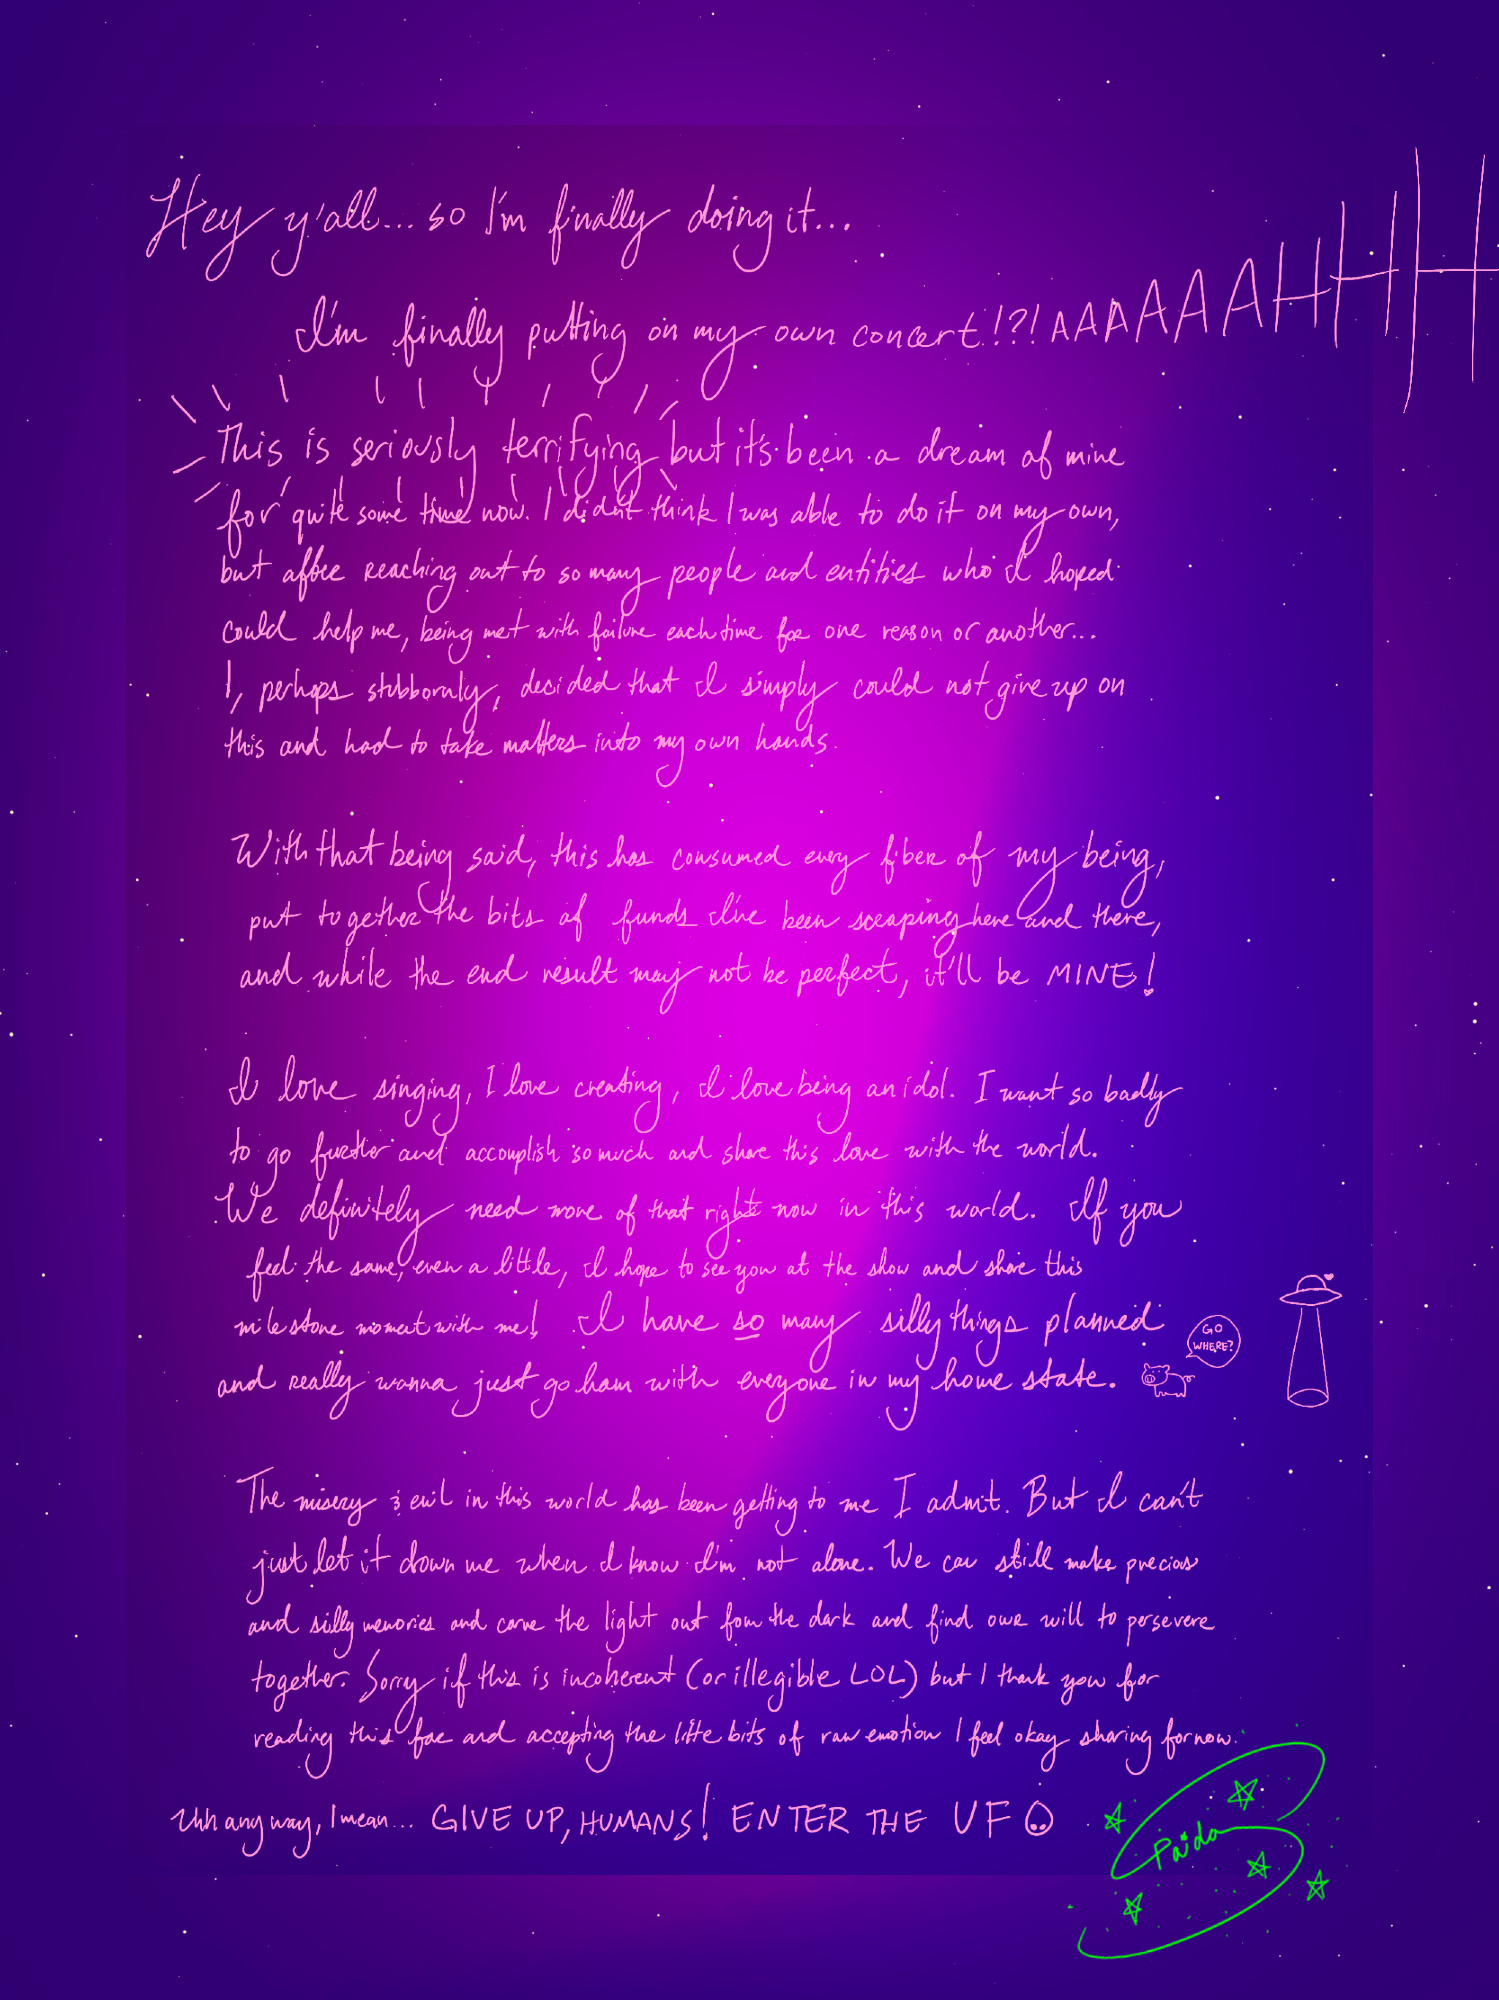 Hey y'all... so I'm finally doing it...
I'm finally putting on my own concert!?! AAAAAAAHHHH
This is seriously terrifying but it's been a dream of mine
for quite some time now. I didn't think I was able to do it on my own,
but after reaching out to so many people and entities who I hoped
could help me, being met with failure each time for one reason or another...
I, perhaps stubbornly, decided that I simply could not give up on
this and had to take matters into my own hands.
With that being said, this has consumed every fiber of my being,
put together the bits of funds I've been scraping here and there,
and while the end result may not be perfect, it'll be MINE!
I love singing, I love creating, I love being an idol. I want so badly
to go further and accomplish so much and share this love with the world.
We definitely need more of that right now in this world. If you
feel the same, even a little, I hope to see you at the show and share this
milestone moment with me! I have so many silly things planned
and really wanna just go ham with everyone in my home state.
GO
WHERE?
The misery & evil in this world has been getting to me I admit. But I can't
just let it down me when I know I'm not alone. We can still make precious
and silly memories and carve the light out from the dark and find our will to persevere
together. Sorry if this is incoherent (or illegible LOL) but I thank you for
reading this far and accepting the little bits of raw emotion I feel okay sharing for now.
Uhh anyway, I mean... GIVE UP, HUMANS! ENTER THE UFO
Paida